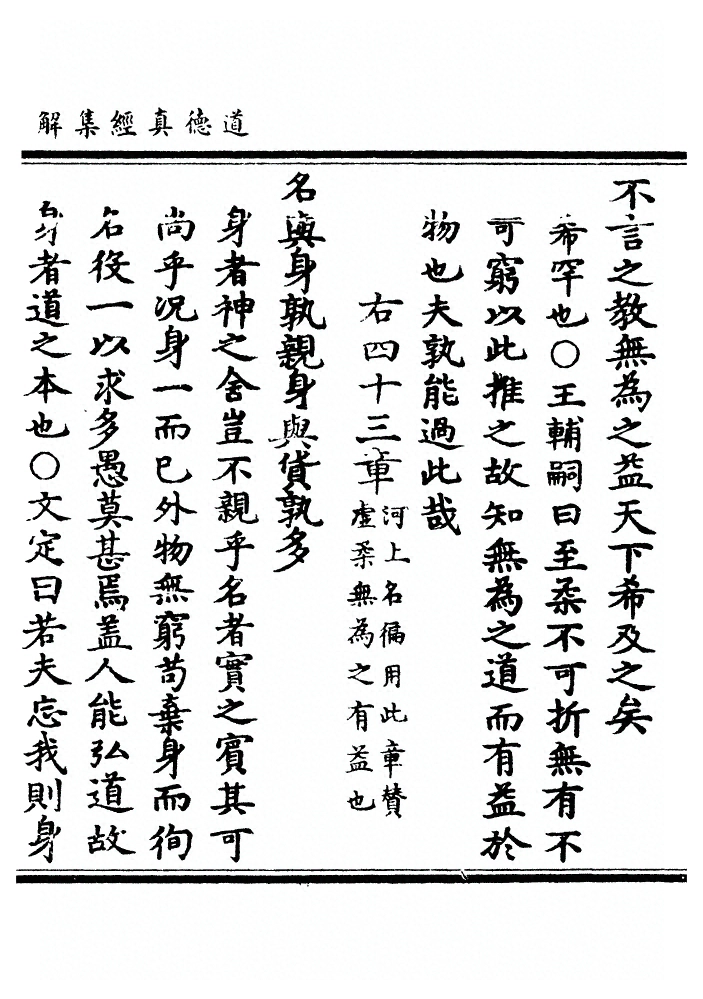 道德真經集解
不言之教無為之益天下希及之矣
希罕也〇王輔嗣曰至柔不可折無有不
可窮以此推之故知無為之道而有益於
物也夫孰能過此哉
右四十三章河上名徧用此章賛
虛柔無為之有益也
名與身孰親身與貨孰多
身者神之舍豈不親乎名者實之賓其可
尚乎况身一而已外物無窮苟棄身而徇
名役一以求多愚莫甚焉盖人能弘道故
身者道之本也〇文定曰若夫忘我則身